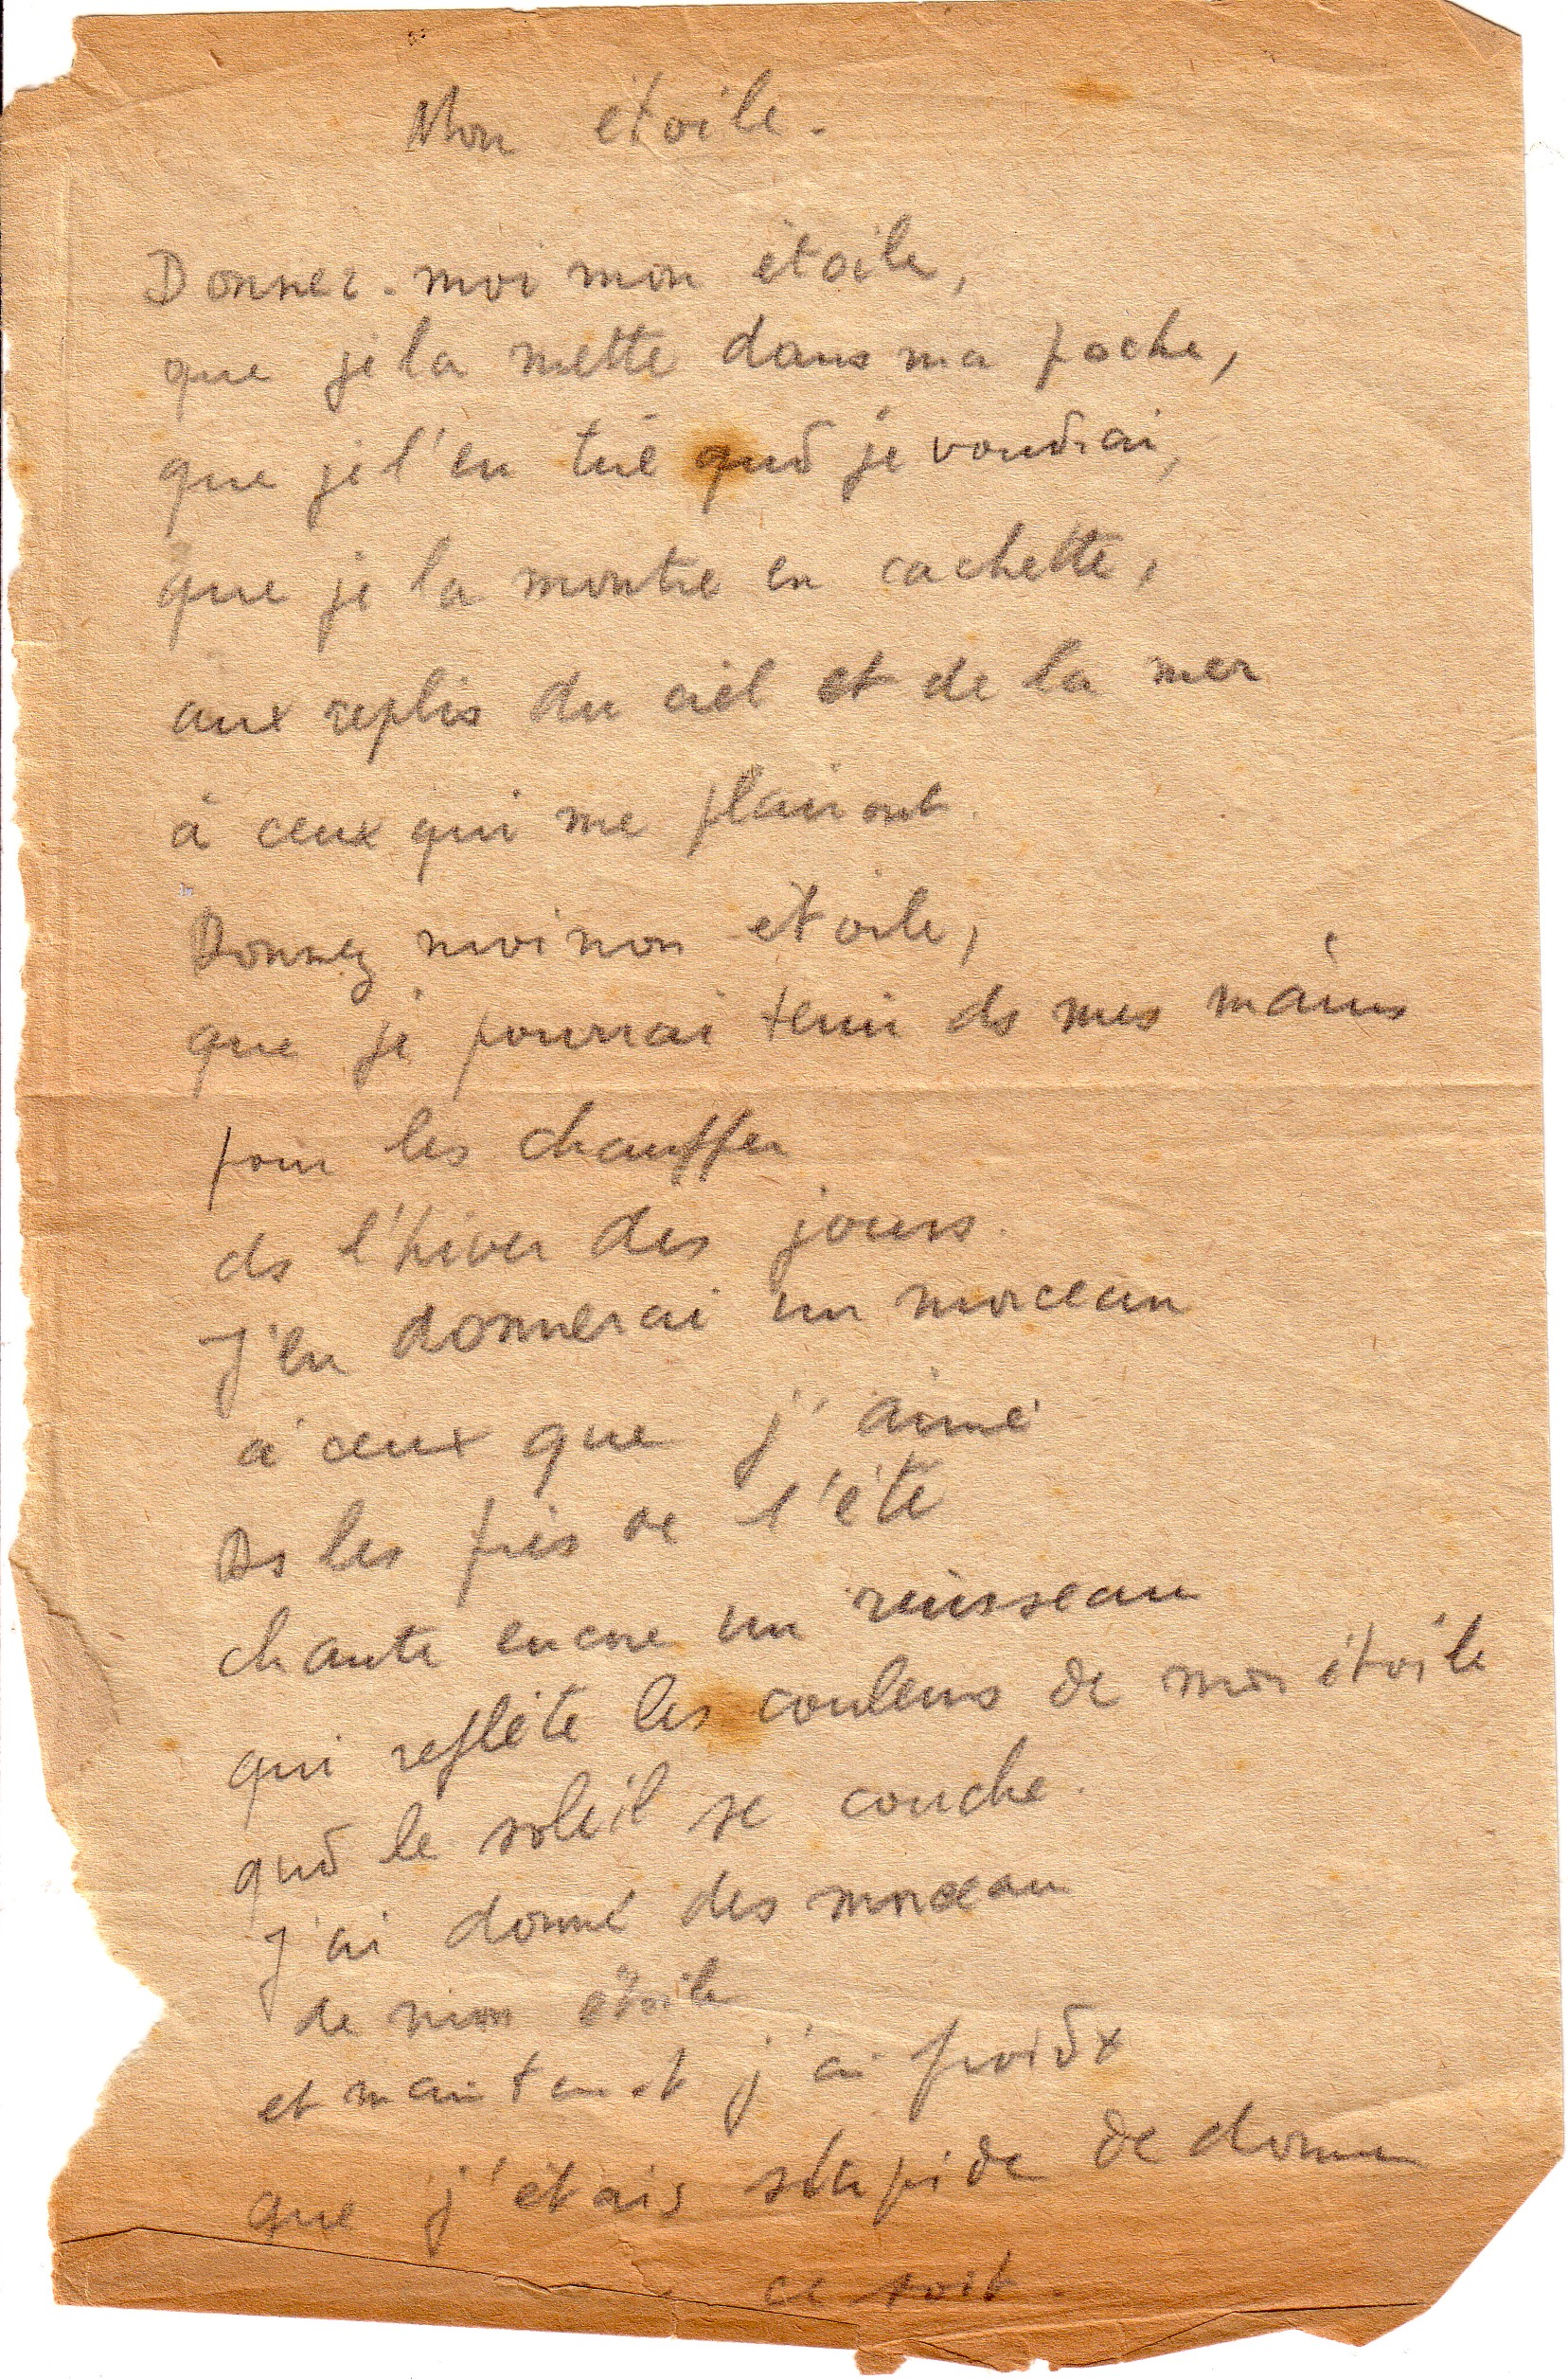 Mon étoile.
Donnez-moi mon étoile,
que je la mette dans ma poche,
que je l'en tire qud je voudrai,
que je la montre en cachette,
aux replis du ciel et de la mer
à ceux qui me plairont.
Donnez moi mon étoile,
que je pourrai tenir ds mes mains
pour les chauffer
ds l'hiver des jours.
J'en donnerai un morceau
à ceux que j'aime
Ds les prés de l'été
chante encore un ruisseau
qui reflète les couleurs de mon étoile
qud le soleil se couche.
J'ai donné des morceau
de mon étoile
et maintenant j'ai froid
que j'étais stupide de donner
ce soit.